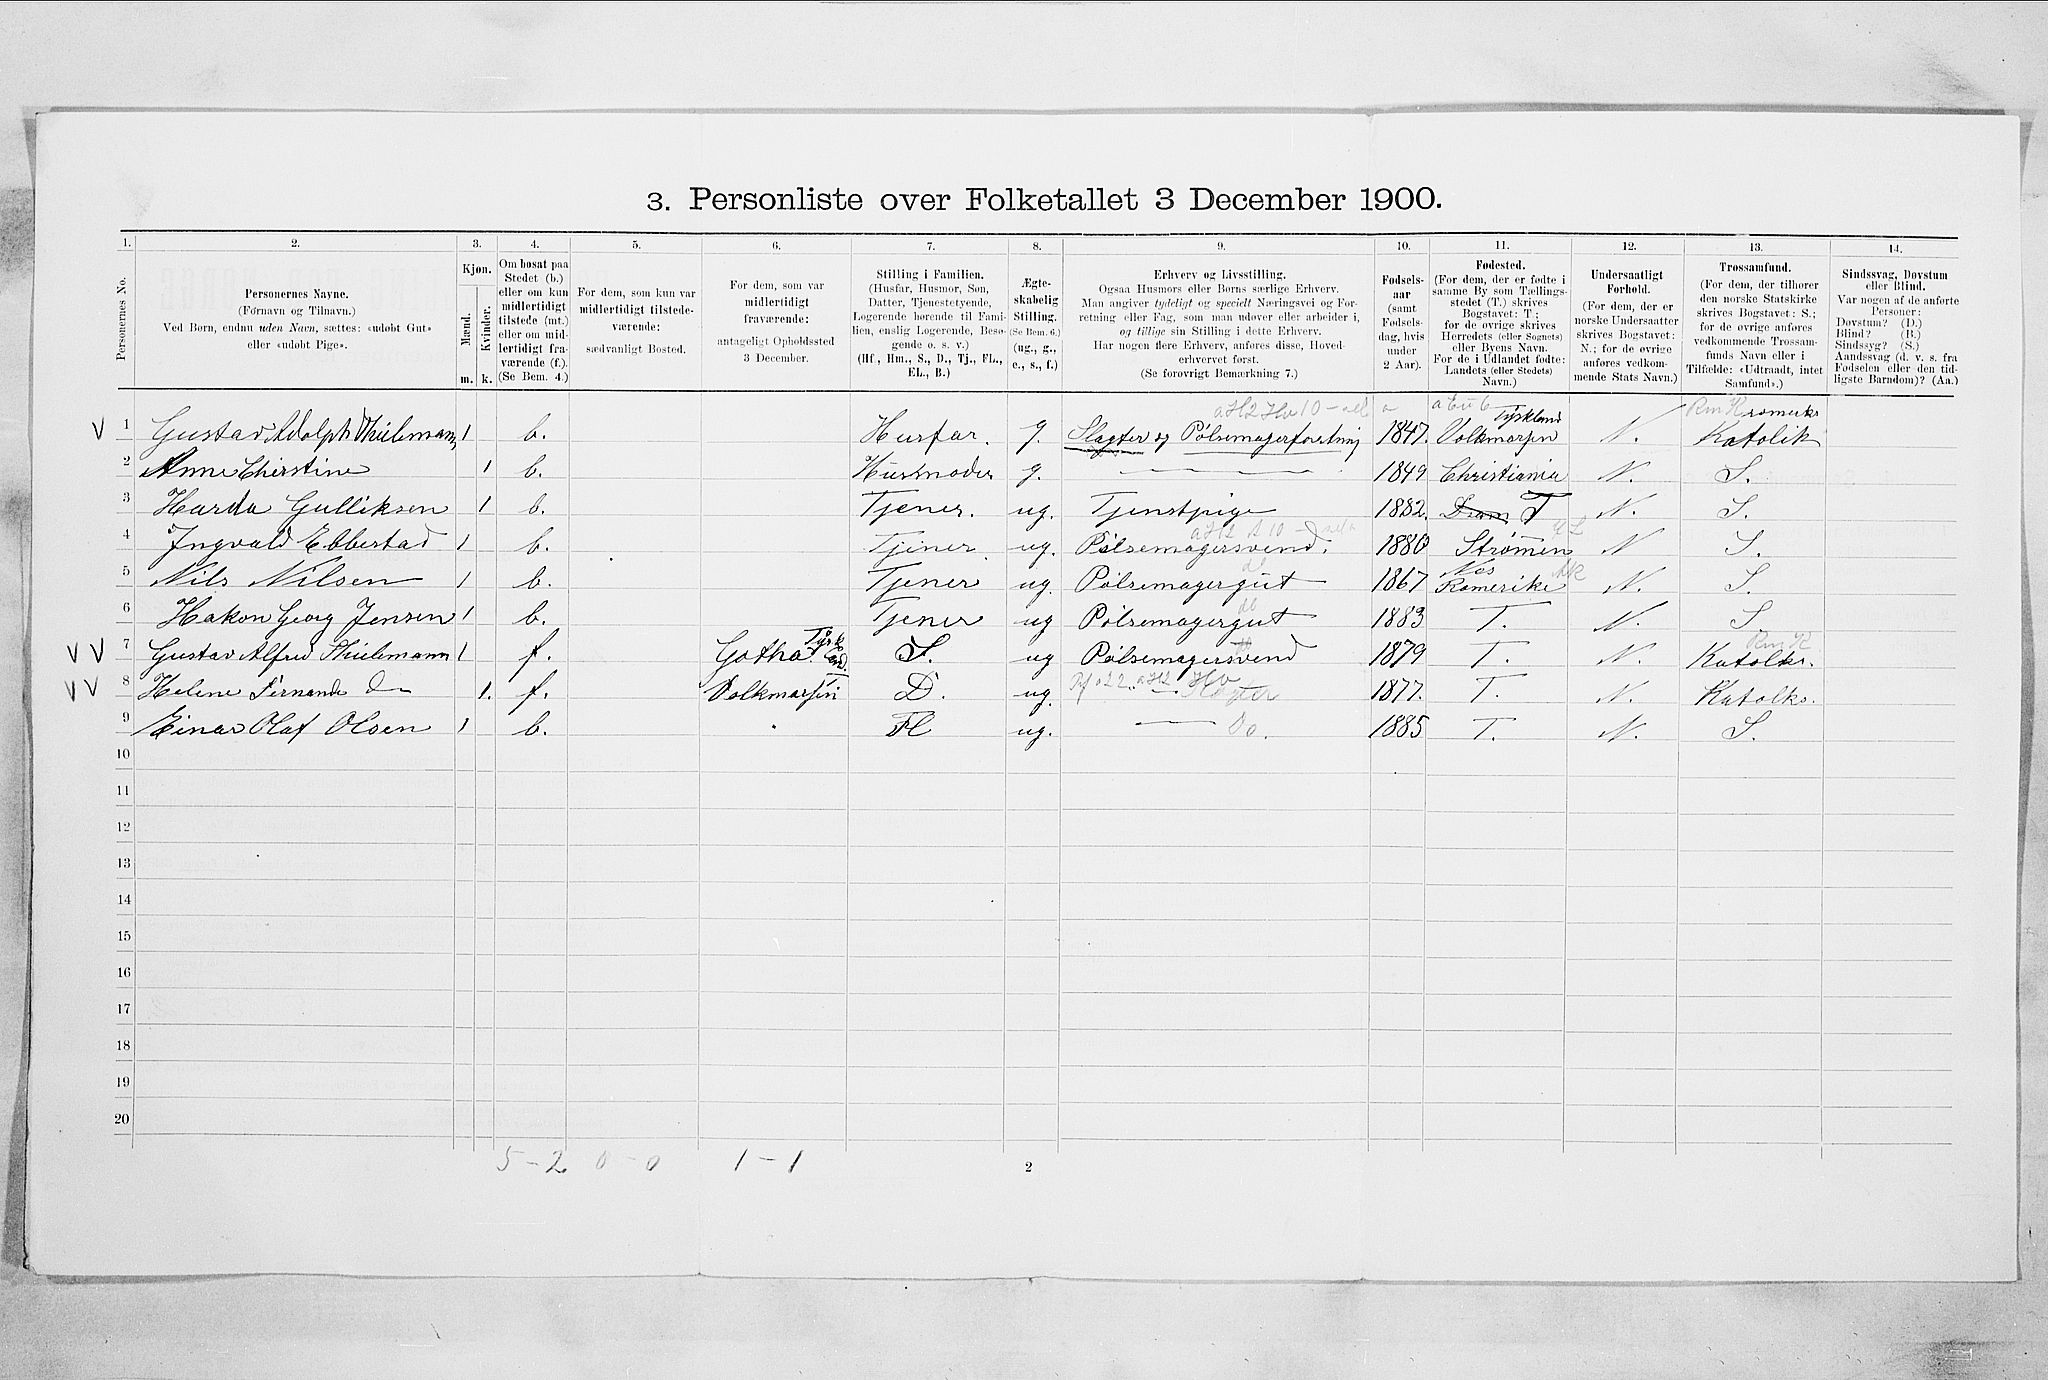 3. Personliste over Folketallet 3 December 1900.
1. 2. 3. 4. 5. 6. 7. 8. 9. 10. 11. 12. 13. 14.
Personernes No.
Personernes Navne.
(Fornavn og Tilnavn.)
Ved Børn, endnu uden Navn, sættes: «udøbt Gut»
eller «udøbt Pige».
Kjøn.
Mænd.
Kvinder.
m. k.
Om bosat paa
Stedet (b.)
eller om kun
midlertidigt
tilstede (mt.)
eller om mid-
lertidigt fra-
værende (f.).
(Se Bem. 4.)
For dem, som kun var
midlertidigt tilstede-
værende:
sædvanligt Bosted.
For dem, som var
midlertidigt
fraværende:
antageligt Opholdssted
3 December.
Stilling i Familien.
(Husfar, Husmor, Søn,
Datter, Tjenestetyende,
Logerende hørende til Fami-
lien, enslig Logerende, Besø-
gende o. s. v.)
(Hf., Hm., S., D., Tj., FL.,
EL., B.)
Ægte-
skabelig
Stilling.
(Se Bem. 6.)
(ug., g.,
e., s., f.)
Erhverv og Livsstilling.
Ogsaa Husmors eller Børns særlige Erhverv.
Man angiver tydeligt og specielt Næringsvei og For-
retning eller Fag, som man udøver eller arbeider i,
og tillige sin Stilling i dette Erhverv.
Har nogen flere Erhverv, anføres disse, Hoved-
erhvervet først.
(Se forøvrigt Bemærkning 7.)
Fødsels-
aar
(samt
Fødsels-
dag, hvis
under
2 Aar).
Fødested.
(For dem, der er fødte i
samme By som Tællings-
stedet (T.) skrives
Bogstavet: T.;
for de øvrige skrives
Herredets (eller Sognets)
eller Byens Navn.
For de i Udlandet fødte:
Landets (eller Stedets)
Navn.)
Undersaatligt
Forhold.
(For dem, der er
norske Undersaatter
skrives Bogstavet:
N.; for de øvrige
anføres vedkom-
mende Stats Navn.)
Trossamfund.
(For dem, der tilhører
den norske Statskirke
skrives Bogstavet: S.;
for de øvrige anføres
vedkommende Trossam-
funds Navn eller i
Tilfælde: «Udtraadt, intet
Samfund».)
Sindssvag, Døvstum
eller Blind.
Var nogen af de anførte
Personer:
Døvstum? (D.)
Blind? (B.)
Sindssyg? (S.)
Aandssvag (d. v. s. fra
Fødselen eller den tid-
ligste Barndom)? (Aa.)
V 1 Gustav Adolph Thülemann 1 b. Husfar. g. Slagter og Pølsemagerforretning 1847. Tyskland Volkmarsen N. romersk Katolik
2 Anne Christine 1 b. Husmoder g. 1849 Christiania N. S.
3 Harda Gulliksen 1 b. Tjener. ug. Tjenstpige 1882. Dram T N. S.
4 Ingvald Ebbestad 1 b. Tjener. ug. Pølsemagersvend. 1880 Strømmen N S.
5 Nils Nilsen 1 b. Tjener ug. Pølsemagergut 1867 Nes Romerike N. S.
6 Hakon Georg Jensen 1 b. Tjener ug Pølsemagergut 1883 T. N. S.
V V 7 Gustav Alfred Thülemann 1 f. Gotha Tyskland. S. ug Pølsemagersvend 1879 T. N. Katolks.
V V 8 Helene Fernande Do 1. f. Volkmarsen D. ug. 1877. T. N. Katolks.
9 Einar Olaf Olsen 1 b. Fl ug. Do. 1885 T. N. S.
10
11
12
13
14
15
16
17
18
19
20
5 - 2 0 - 0 1 - 1
2